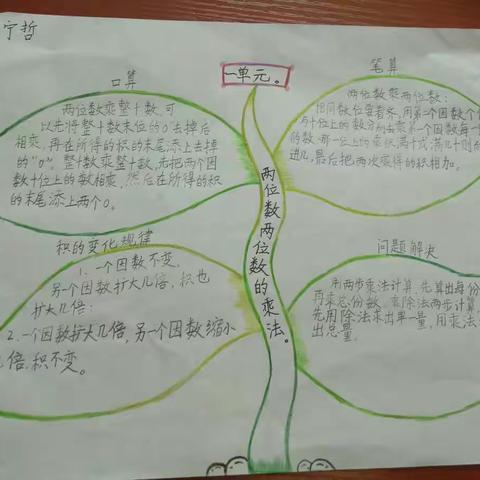 宁哲
一单元。
两位数两位数的乘法。
口算
两位数乘整十数,可
以先将整十数末位的0去掉后
相乘,再在所得的积的末尾添上去掉
的"0"。整十数乘整十数,先把两个因
数十位上的数相乘,然后在所得的积
的末尾添上两个0。
笔算
两位数乘两位数:
相同数位要看齐,用第二个因数个
与十位上的数分别去乘第一个因数每一
的数,哪一位上的乘积满十或满几十则向
进几,最后把两次乘得的积相加。
积的变化规律
1、一个因数不变,
另一个因数扩大几倍,积也
扩大几倍;
2、一个因数扩大几倍,另一个因数缩小
几倍,积不变。
问题解决
用两步乘法计算,先算出每份
再乘总份数。乘除法两步计算,
先用除法求出单一量,用乘法
出总量。